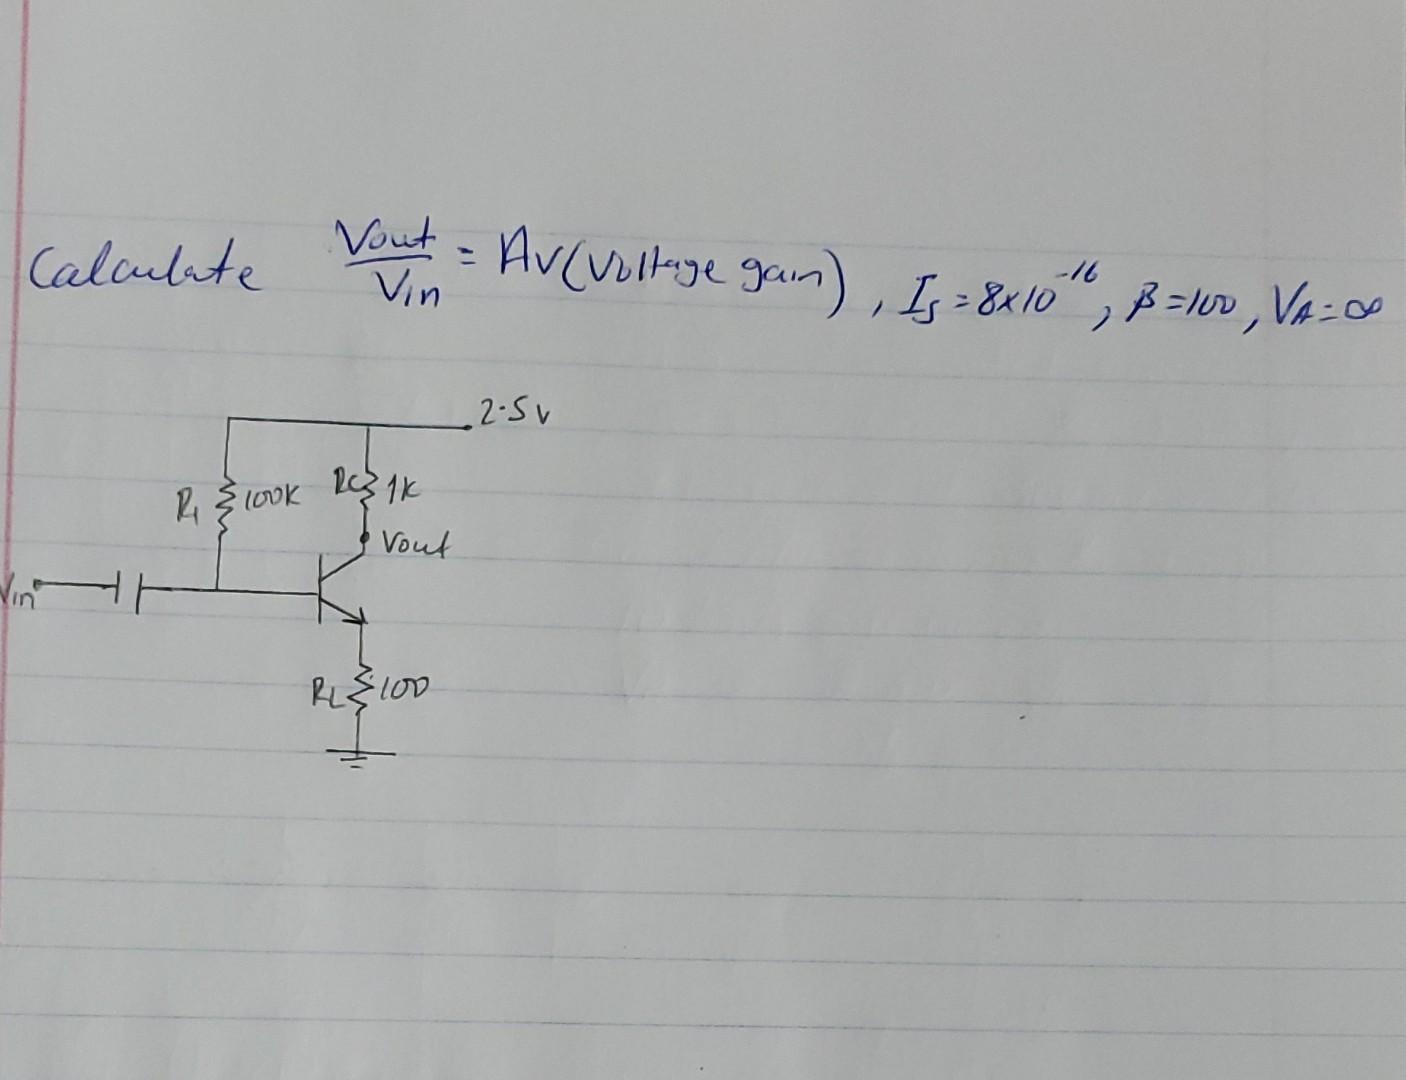 Calculate Vout/Vin = Av(Voltage gain), Is = 8x10^-16, β=100, VA=∞
2.5v
R1 100K RC 1K
Vout
Vin
RL 100